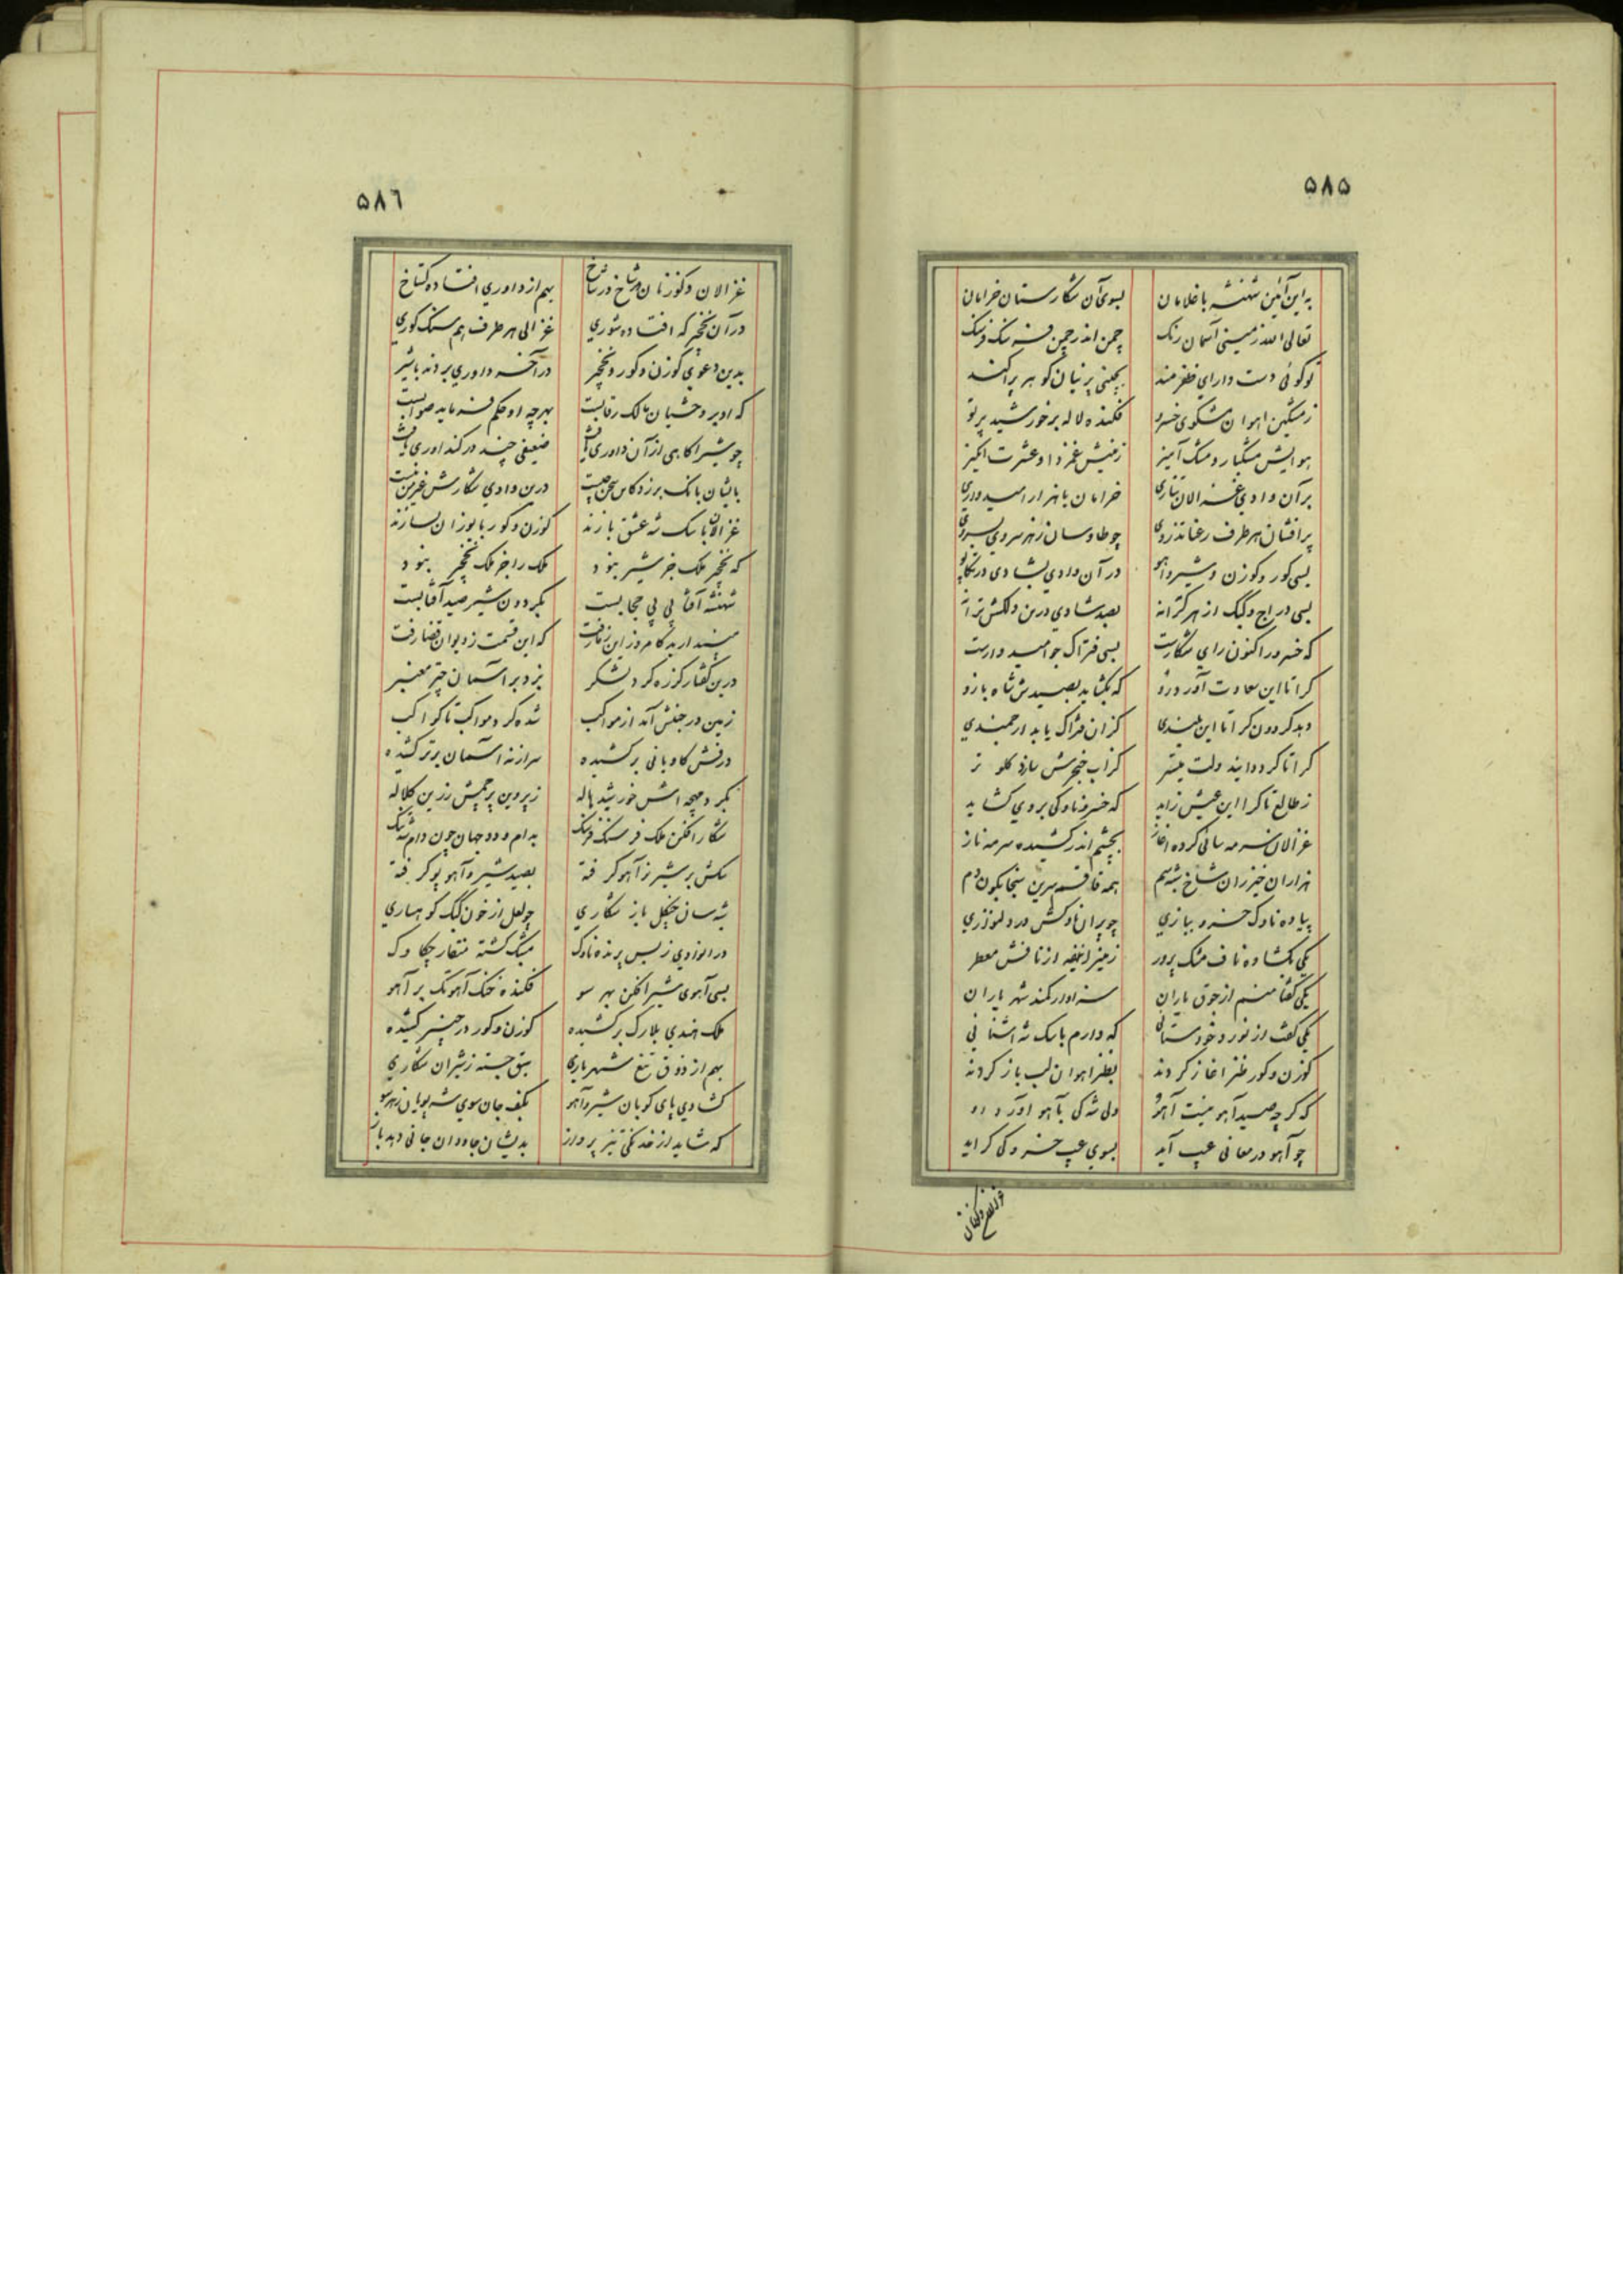 ۵۸۵
به این آئین شهنشه با غلامان بسوی آن شکارستان خرامان
تعالی الله زمینی آسمان رنک چمن اندر چمن فرسنک فرسنک
تو کوئی دست دارای ظفرمند بچینی پرنیان کوهر پراکند
زمشکین اهوان مشکوی خسرو فکنده لاله بر خورشید پرتو
هوایش مشکبار و مشک آمیز زمینش غمزدا و عشرت انکیز
بر آن وادی غزالان تتاری خرامان با هزار امیدواری
پر افشان هر طرف رعنا تذروی چو طاوسان زهر سروی بسروی
بسی کور و کوزن و شیر و اهو در آن وادی بشادی در تکاپو
بسی دراج و کبک از هر کرانه بصد شادی درین دلکش ترانه
که خسرو را کنون رای شکارست بسی فتراک جو امیدوارست
کرا تا این سعادت آورد رو که بکشاید بصیدش شاه بازو
دهد کردون کرا تا این بلندی کزان فتراک یابد ارجمندی
کرا تا کردد ایند ولت میسر کز اب خنجرش سازد کلو تر
زطالع تا کرا این عیش زاید که خسرو ناوکی بروی کشاید
غزالان سرمه سائی کرده اغاز بچشم اندر کشیده سرمه ناز
هزاران خیزران شاخ شبه سم همه قاقم سرین سنجابکون دم
پیاده ناوک خسرو ببازی چو پران ناوکش در دلنوازی
یکی بکشاده ناف مشک پرور زمین را نیفه از نافش معطر
یکی کفتا منم از جوق یاران سزاوار کمند شهریاران
یکی کفت از نورد خودستائی که دارم با سک شه اشنائی
کوزن و کور طنز اغاز کردند بطنز اهوان لب باز کردند
که کرچه صید آهو نیست آهو ولی شه کی بآهو آورد رو
چو آهو در معانی عیب آید بسوی عیب خسرو کی کراید
۵۸٦
غزالان و کوزنان شاخ در شاخ بهم از داوری افتاده کستاخ
در آن نخجیر که افتاده شوری غزالی هر طرف هم سنک کوری
بدین دعوی کوزن و کور و نخجیر در آخر داوری بردند با شیر
که او بر وحشیان مالک رقابست بهر چه او حکم فرماید صوابست
چو شیر اکاهی از آن داوری یافت ضعیفی چند در کنداوری یافت
بایشان بانک برزد کاین سخن چیست درین وادی شکارش غیر من نیست
غزالان با سک شه عشق بازند کوزن و کور با یوزان بسازند
که نخجیر ملک جز شیر نبود ملک را جز ملک نخجیر نبود
شهنشه آفتابی بی حجابست بکردون شیر صید آفتابست
مپندارید کامروز این زما رفت که این قسمت ز دیوان قضا رفت
درین کفتار کزره کرد لشکر بزد بر آسمان چتر معنبر
زمین در جنبش آمد از مواکب شده کرد مواکب تا کواکب
درفش کاویانی برکشیده سر از نه آسمان برتر کشیده
بکرد مهچه اش خورشید هاله ز پروین پرچمش زرین کلاله
شکار افکن ملک فرسنک فرسنک بدام و دد جهان چون دام شه تنک
سکش بر شیر نر آهو کرفته بصید شیر و آهو پو کرفته
بشه سان جنکل باز شکاری چو لعل از خون کبک کوهساری
در انوادی ز بس پرنده ناوک مشبک کشته منقار چکاوک
بسی آهوی شیر افکن بهر سو فکنده خنک آهو تک بر آهو
ملک هندی بلارک برکشیده کوزن و کور در چنبر کشیده
بهم از ذوق تیغ شهریاری سبق جسته ز شیران شکاری
کشادی پای کوبان شیر و آهو بکف جان سوی شه پویان زهر سو
که شاید از خدنکی تیز پرواز بدیشان جاودان جانی دهد باز